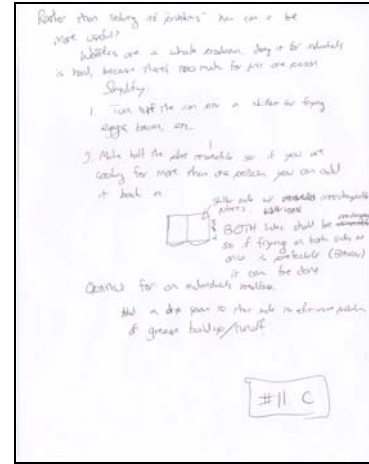 Rather than solving its "problems" how can it be
more useful?
Waffles are a whole production, doing it for individuals
is hard, because there's too much for just one person
Simplify:
1. Turn half the iron into a skillet for frying
eggs, bacon, etc.
2. Make half the plates removable so if you are
cooking for more than one person you can add
it back in.
skillet side w/ interchangeable
plates
BOTH sides should be
so if frying on both sides at
once is preferable (Bacon)
it can be done
for an individual's
Add a drip pan to the side to eliminate problem
of grease buildup/runoff
#11 C